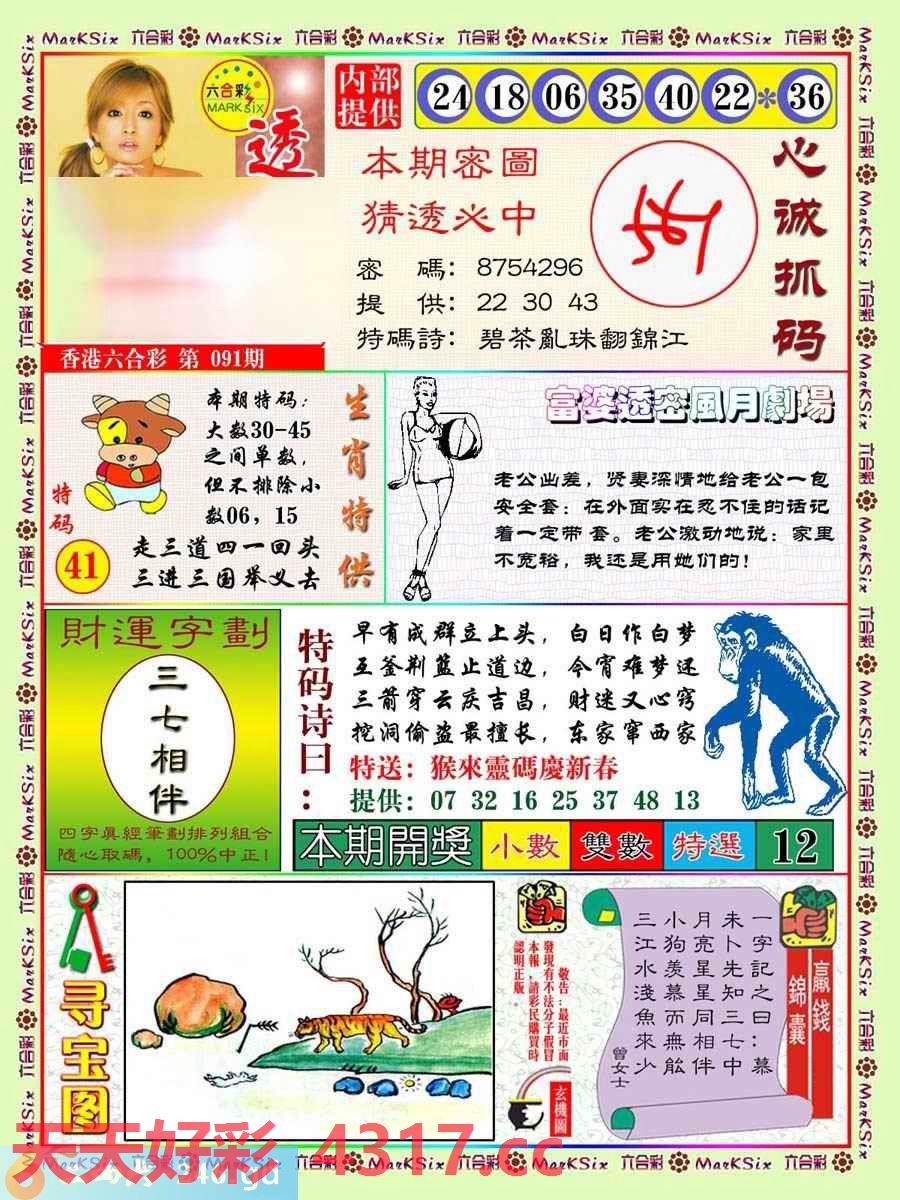 MarKSix 六合彩 MarKSix 六合彩 MarKSix 六合彩 MarKSix 六合彩 MarKSix 六合彩
六合彩
MARK SIX
透
内部
提供
24 18 06 35 40 22 * 36
本期密圖
猜透必中
密 碼: 8754296
提 供: 22 30 43
特碼詩: 碧茶亂珠翻錦江
心诚抓码
香港六合彩 第 091期
本期特码:
大数30-45
之间单数,
但不排除小
数06, 15
生肖特供
特码
41
走三道四一回头
三进三国举义去
富婆透密風月劇場
老公出差, 贤妻深情地给老公一包
安全套: 在外面实在忍不住的话记
着一定带 套。老公激动地说: 家里
不宽裕, 我还是用她们的!
財運字劃
三七相伴
四字眞經筆劃排列組合
隨心取碼, 100%中正!
特码诗曰:
早有成群立上头, 白日作白梦
五釜荆蓝止道边, 今宵难梦还
三箭穿云庆吉昌, 财迷又心窍
挖洞偷盗最擅长, 东家窜西家
特送: 猴來靈碼慶新春
提供: 07 32 16 25 37 48 13
本期開獎 小數 雙數 特選 12
寻宝图
敬告:最近市面
發現有不法分子假冒
本報,請彩民購買時
認明正版。
玄機圖
贏錢
錦囊
一字記之曰:慕
未卜先知三七中
月亮星星同相伴
小狗羨慕而無能
三江水淺魚來少
曾女士
天天好彩 4317.cc
MarKSix 六合彩 MarKSix 六合彩